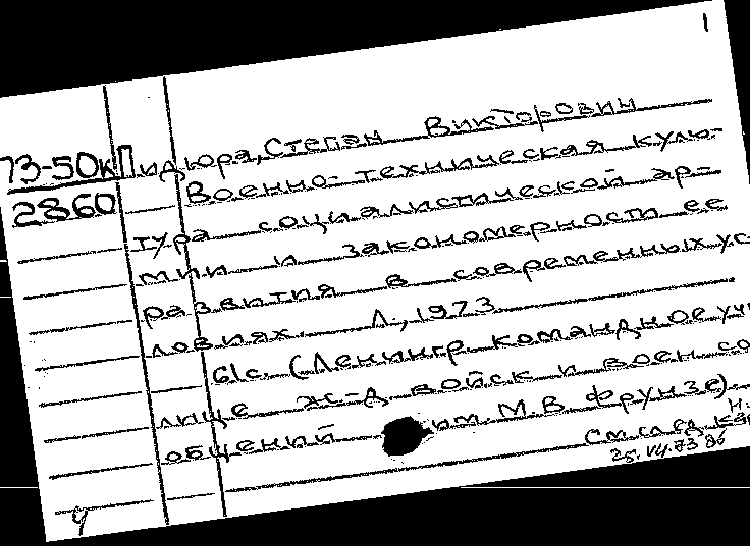 1
73-50к Пидюра, Степан Викторович
2860 Военно-техническая куль-
тура социалистической ар-
мии и закономерности ее
развития в современных ус
ловиях. Л., 1973
61с. (Ленингр. командное учи
лище ж-д войск и воен со
общений им. М.В Фрунзе)
См. след. н.
25.VII.73
4